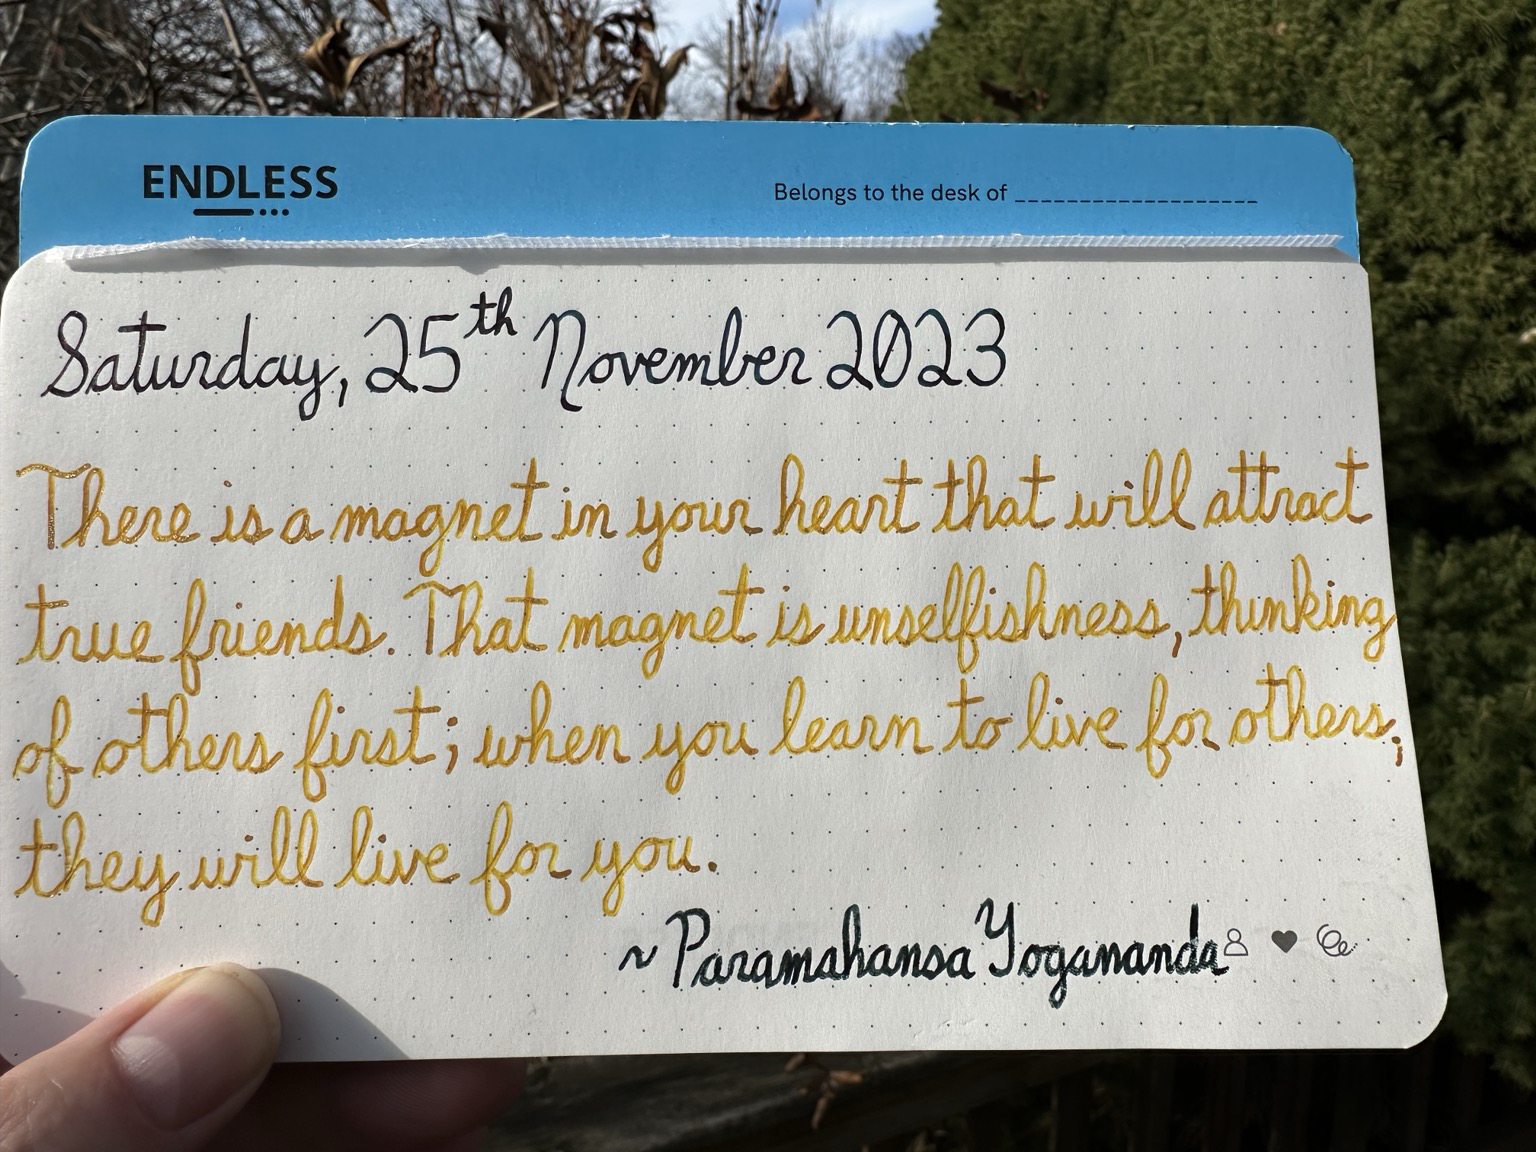 ENDLESS
Belongs to the desk of ___________________
Saturday, 25th November 2023
There is a magnet in your heart that will attract
true friends. That magnet is unselfishness, thinking
of others first; when you learn to live for others,
they will live for you.
~ Paramahansa Yogananda